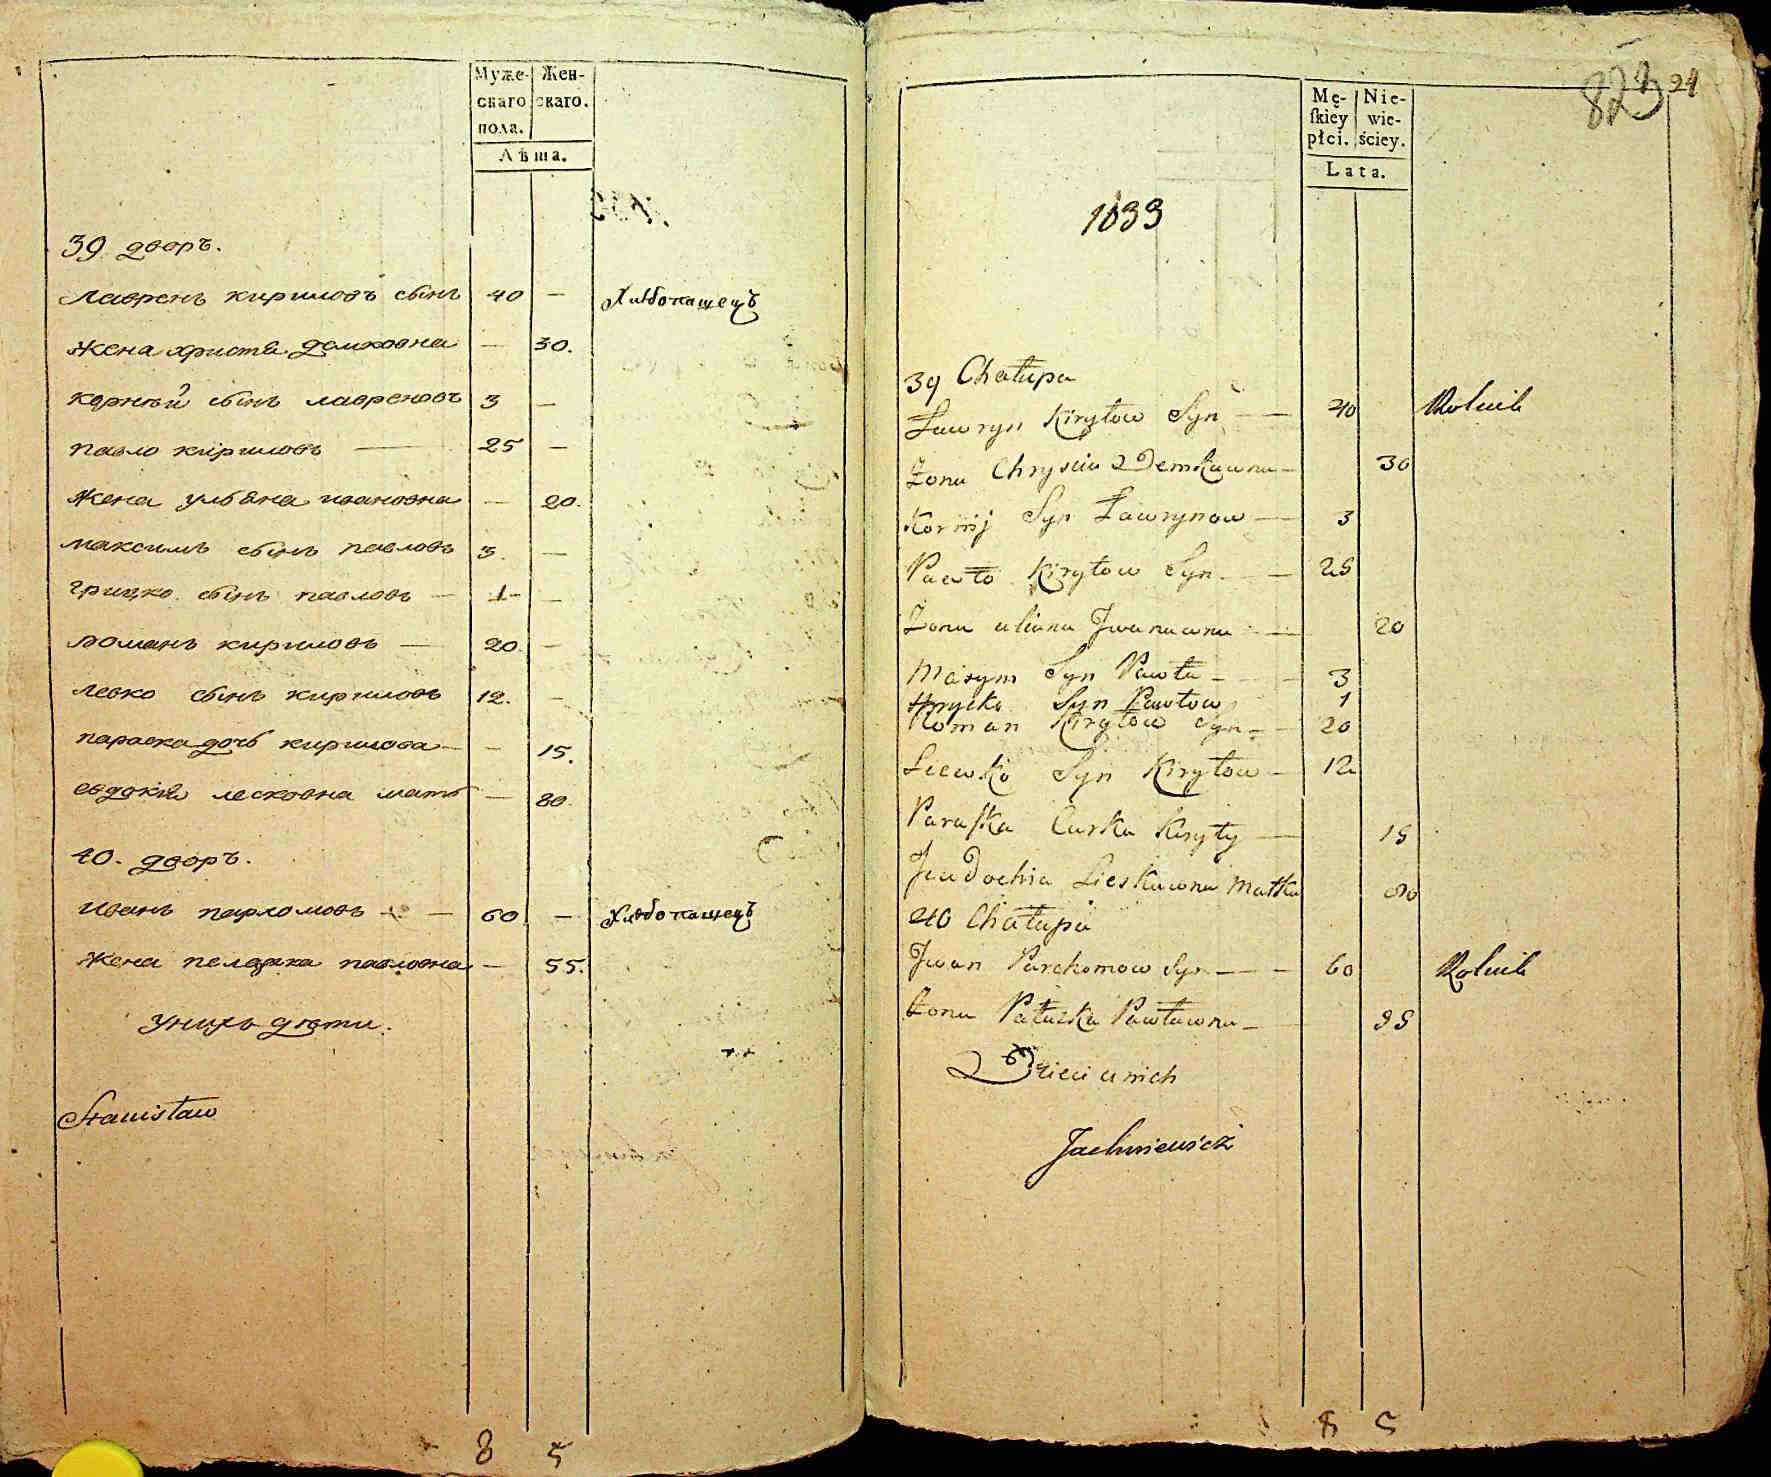 Муже- Жен-
скаго скаго.
пола.
Лѣта.
39 дворъ.
Лаврень кириловъ сынъ 40 — Хлѣбопашецъ
Жена христя демковна — 30.
Корнѣй сынъ лавреновъ 3 —
павло кириловъ — 25 —
Жена ульяна ивановна — 20.
максимъ сынъ павловъ 3. —
грицко сынъ павловъ — 1 —
романъ кириловъ — 20. —
левко сынъ кириловъ 12. —
параска дочь кирилова — — 15.
евдокия лесковна мать — 80.
40. дворъ.
иванъ пархомовъ — 60. — Хлѣбопашецъ
Жена пелажка павловна — 55.
у нихъ дѣти.
Stanisław
8 5
823 24
Mę- Nie-
ſkiey wie-
płci. ściey.
Lata.
1033
39 Chałupa
Ławryn Kiryłow Syn — 40 Rolnik
Żona Chryscia Demkawna — 30
Kornij Syn Ławrynow — 3
Pawło Kiryłow Syn — 25
Żona uliana Jwanawna — 20
Maxym Syn Pawła — 3
Hrycko Syn Pawłow 1
Roman Kiryłow Syn — 20
Liewko Syn Kiryłow — 12
Paraſka Curka Kiryły — 15
Jewdochia Lieskawna Matka 80
40 Chałupa
Jwan Parchomow Syn — 60 Rolnik
Żona Pałażka Pawławna — 55
Dzieci u nich
Jachniewicz
8 5